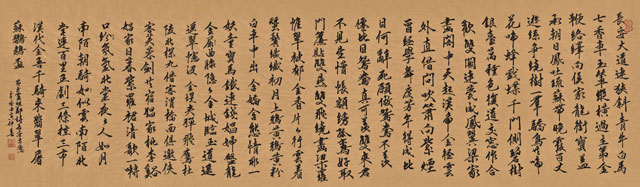 長安大道連狹斜青牛白馬
七香車玉輦縱橫過主第金
鞭絡繹向侯家龍銜寶蓋
承朝日鳳吐流蘇帶晚霞百丈
遊絲繞樹一群嬌鳥啼
花啼蜂戲蝶千門側碧樹
銀臺萬種色復道交窗作合
歡雙闕連甍垂鳳翼梁家
畫閣中天起漢帝金莖雲
外直借問吹簫向紫煙
曾經學舞度芳年得成比
目何辭死願作鴛鴦不羨
仙比目鴛鴦真可羨雙來君
不見生憎帳額繡孤鸞好取
門簾貼雙燕雙飛繞畫梁羅
帷翠被鬱金香片片行雲著
蟬鬢纖纖初月上鴉黃鴉黃粉
白車中出含嬌含態情非一
妖童寶馬鐵連錢娼婦盤龍
金屈曲隱隱朱城臨玉道遙
遙翠幰沒金堤挾彈飛鷹杜
陵北探丸借客渭橋西俱邀俠
客芙蓉劍共宿娼家桃李蹊
娼家日暮紫羅裙清歌一囀
口氛氳北堂夜夜人如月
南陌朝朝騎如似雲南陌北
堂連北里五劇三條控三市
漢代金吾千騎來翡翠屠
蘇鸚鵡杯